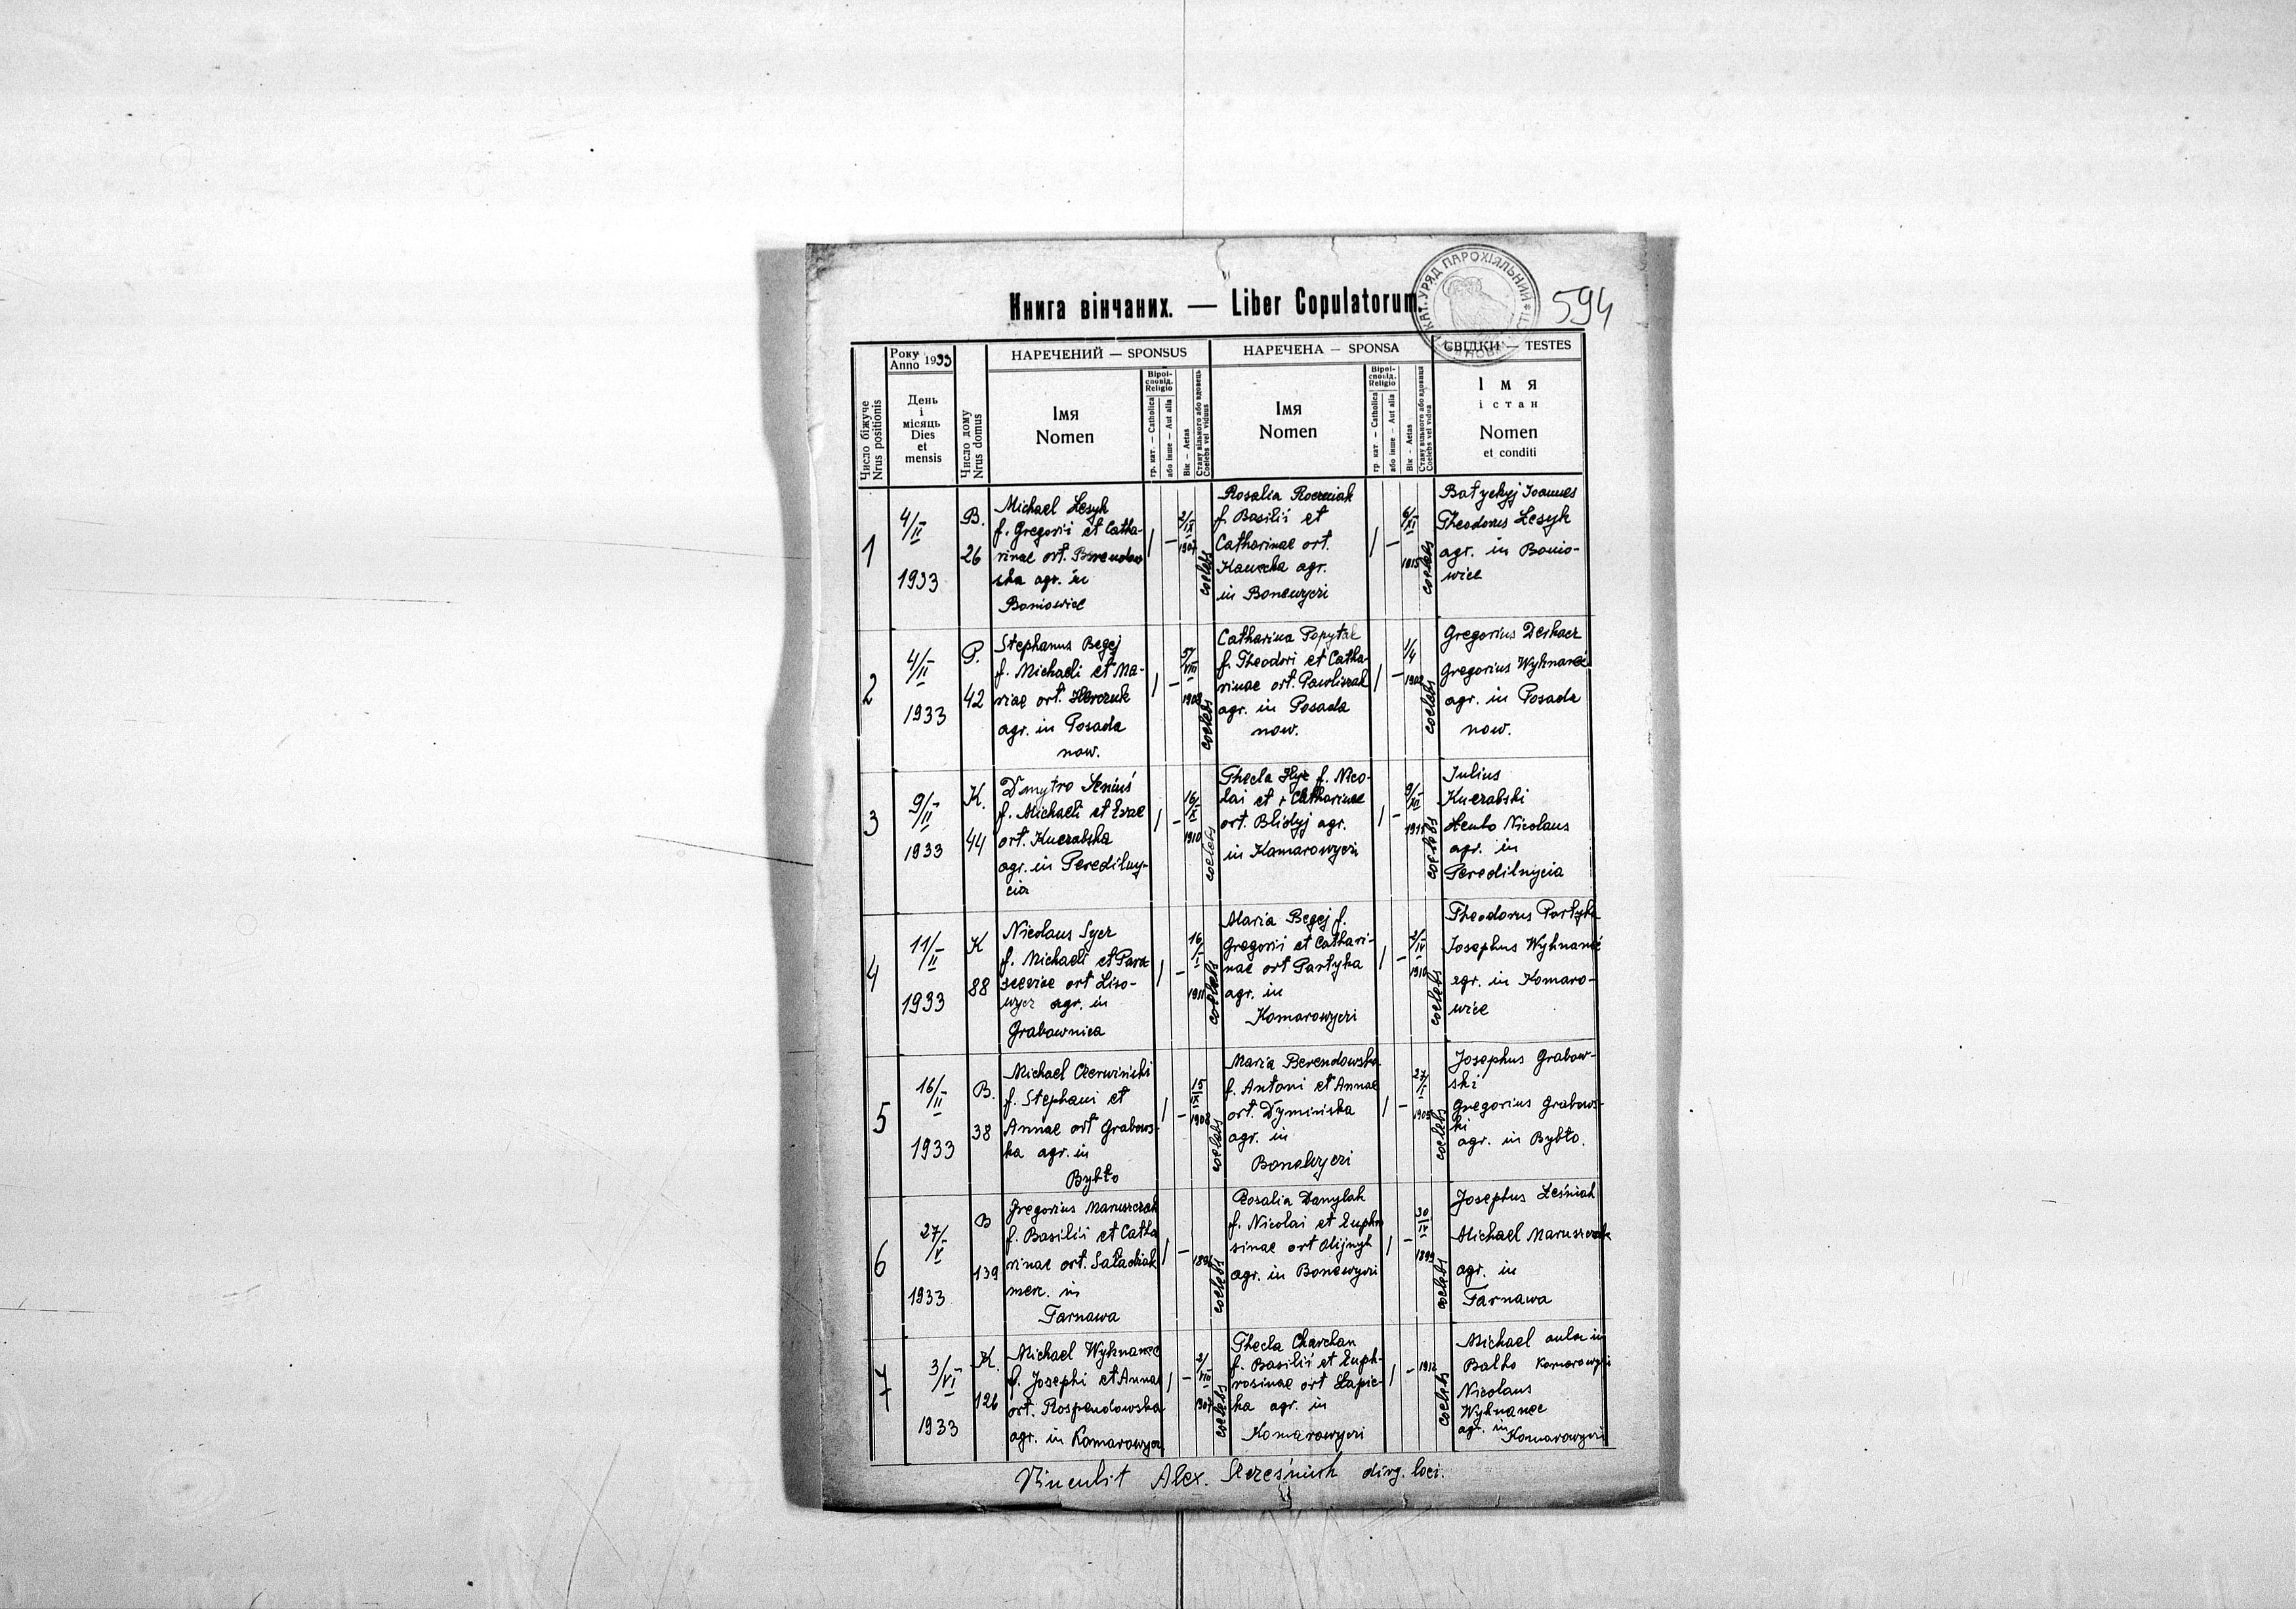 КАТ. УРЯД ПАРОХІЯЛЬНИЙ
594
Книга вінчаних. — Liber Copulatorum
Число біжуче
Nrus positionis
Року
Anno 1933
День
і
місяць
Dies
et
mensis
Число дому
Nrus domus
НАРЕЧЕНИЙ — SPONSUS
Імя
Nomen
Віроі-
сповід.
Religio
гр. кат. — Catholica
або інше — Aut alia
Вік — Aetas
Стану вільного або вдовець
Coelebs vel viduus
НАРЕЧЕНА — SPONSA
Імя
Nomen
Віроі-
сповід.
Religio
гр. кат. — Catholica
або інше — Aut alia
Вік — Aetas
Стану вільного або вдовиця
Coelebs vel vidua
СВІДКИ — TESTES
Імя
і стан
Nomen
et conditi
1
4/II
1933
B.
26
Michael Lesyk
f. Gregorii et Catha-
rinae ort.
agr. in
Boniowice
2/IX
1907
coelebs
Rosalia
f. Basilii et
Catharinae ort.
agr.
in Bonewyczi
6/XI
1915
coelebs
Batyckyj Joannes
Theodorus Lesyk
agr. in Bonio-
wice
2
4/II
1933
P.
42
Stephanus Begej
f. Michaeli et Ma-
riae ort.
agr. in Posada
now.
5/VIII
1908
coelebs
Catharina Popytak
f. Theodori et Catha-
rinae ort. Pawliszak
agr. in Posada
now.
1/4
1908
coelebs
Gregorius Derkacz
Gregorius Wyhnaneć
agr. in Posada
now.
3
9/II
1933
K.
44
Dmytro Seniuś
f. Michaeli et Evae
ort. Kucrabska
agr. in Peredilny-
cia
16/IX
1910
coelebs
Thecla Hyc f. Nico-
lai et + Catharinae
ort. Blidyj agr.
in Komarowyczi
9/XII
1915
coelebs
Julius
Kucrabski
Nicolaus
agr. in
Peredilnycia
4
11/II
1933
K
88
Nicolaus Sycz
f. Michaeli et Para
sceviae ort Liso-
wycz agr. in
Grabownica
16/I
1911
coelebs
Maria Begej f.
Gregorii et Cathari-
nae ort Partyka
agr. in
Komarowyczi
2/IV
1910
coelebs
Theodorus Partyka
Josephus Wyhnaneć
agr. in Komaro-
wice
5
16/II
1933
B.
38
Michael Czerwiński
f. Stephani et
Annae ort Grabows-
ka agr. in
Bybło
15/IX
1908
coelebs
Maria Berendowska
f. Antoni et Annae
ort. Dymińska
agr. in
Bonewyczi
27/I
1905
coelebs
Josephus Grabow-
ski
Gregorius Grabows-
ki
agr. in Bybło.
6
27/V
1933
B
139
Gregorius Maruszczak
f. Basilii et Catha
rinae ort. Saładiak
merc. in
Tarnawa
coelebs
Rosalia Danylak
f. Nicolai et Euphro
sinae ort Olijnyk
agr. in Bonewyczi
30/IV
1899
coelebs
Josephus Leśniak
Michael Maruszczak
agr. in
Tarnawa
7
3/VI
1933
K.
126
Michael Wyhnanec
f. Josephi et Annae
ort. Rospendowska
agr. in Komarowyczi
2/VIII
1907
coelebs
Thecla Charchan
f. Basilii et Euph-
rosinae ort Łapic-
ka agr. in
Komarowyczi
1912
coelebs
Michael in
Balko Komarowyczi
Nicolaus
Wyhnanec
agr. in
Komarowyczi
Vinculit Alex. dirg. loci.